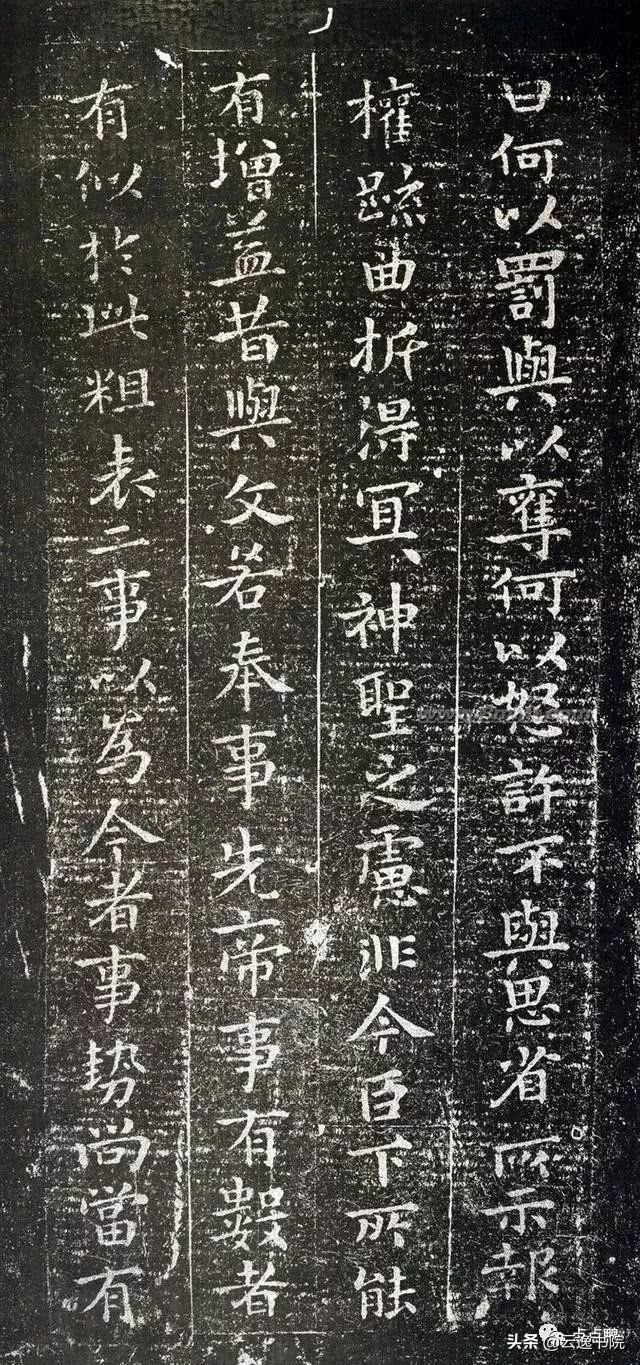 曰何以罰與以奪何以怒許不與思省所示報
權疏曲折得冝神聖之慮非今臣下所能
有增益昔與文若奉事先帝事有數者
有似於此粗表二事以為今者事勢尚當有
头条 @云逸书院